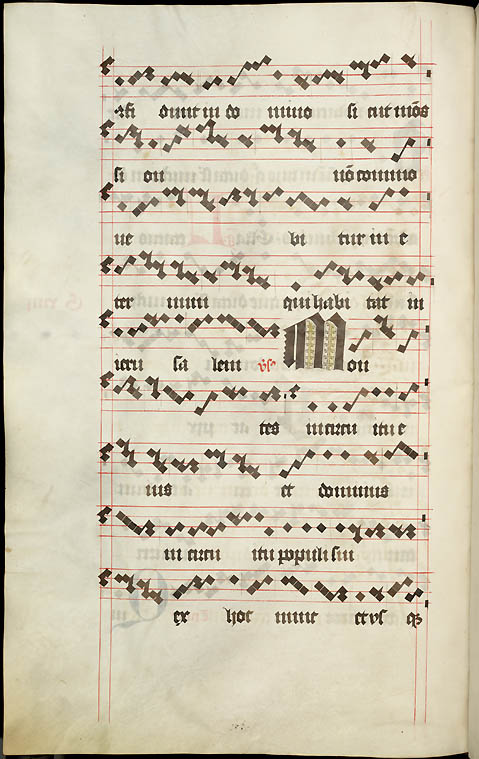 fi dunt in do mino si cut mōs
si on nō commo
ue bi tur in e
ter num qui habi tat in
ieru sa lem vs Mon
tes in circu itu e
ius et dominus
in circu itu populi sui
ex hoc nunc et vs qꝫ